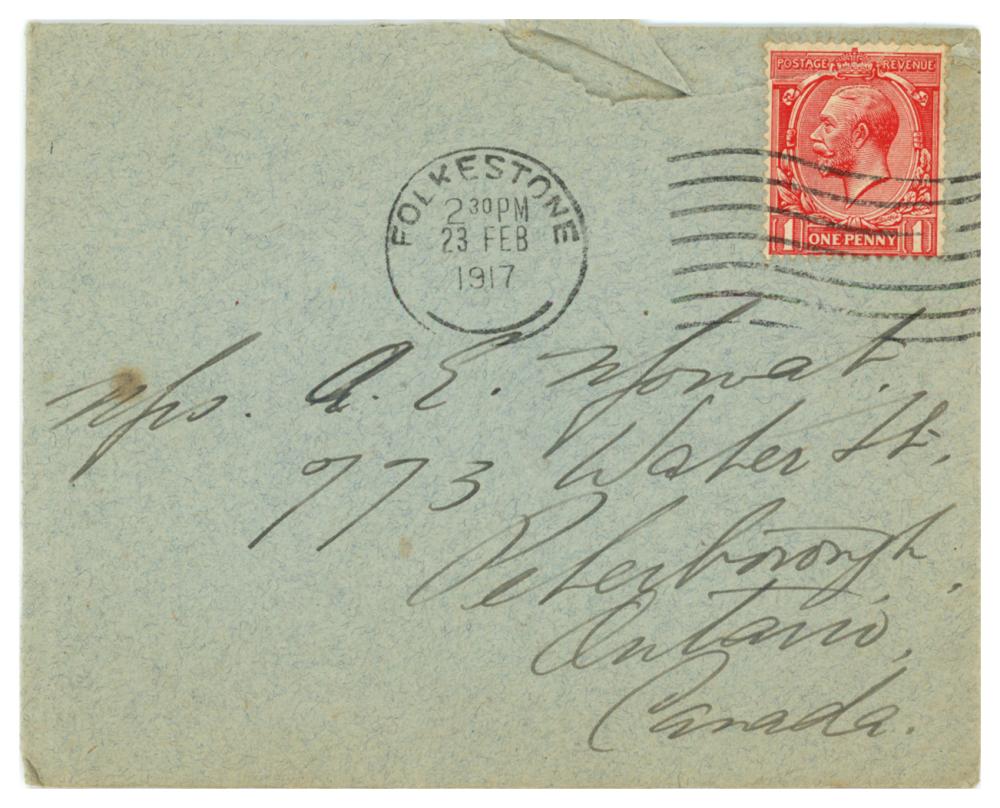 POSTAGE REVENUE
1 ONE PENNY 1
FOLKESTONE
2 30 PM
23 FEB
1917
Mrs. A. E. Mowat,
773 Water St.,
Peterborough,
Ontario,
Canada.